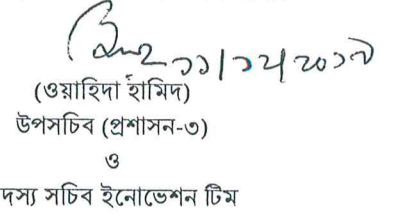 ১১/১২/২০১৭
(ওয়াহিদা হামিদ)
উপসচিব (প্রশাসন-৩)
ও
দস্য সচিব ইনোভেশন টিম